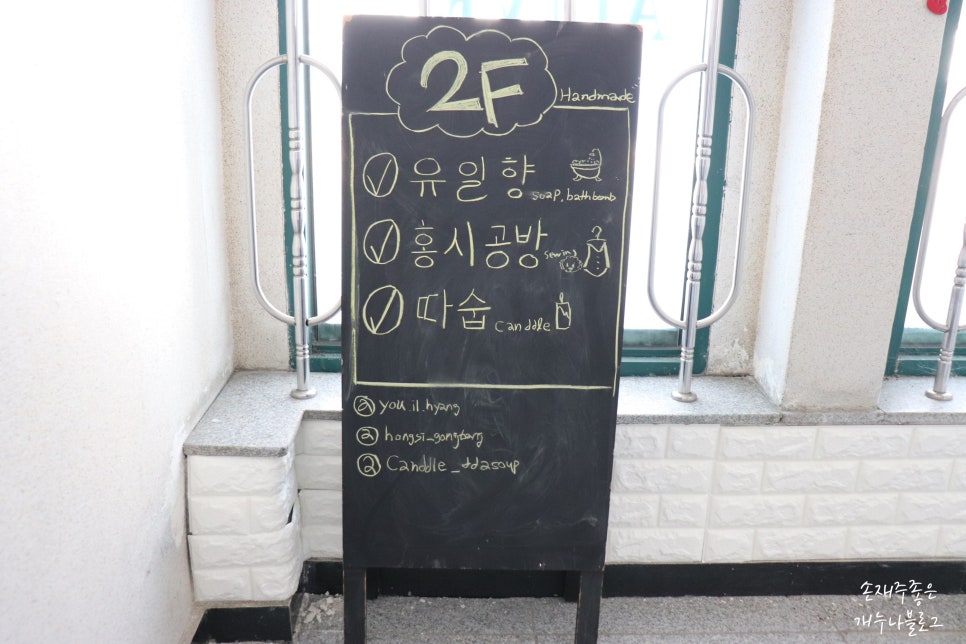 2F
Handmade
유일향
soap, bathbomb
홍시공방
sewing
따숩
canddle
@ you.il.hyang
@ hongsi_gongbang
@ Canddle_ddasoup
손재주좋은
개누나블로그